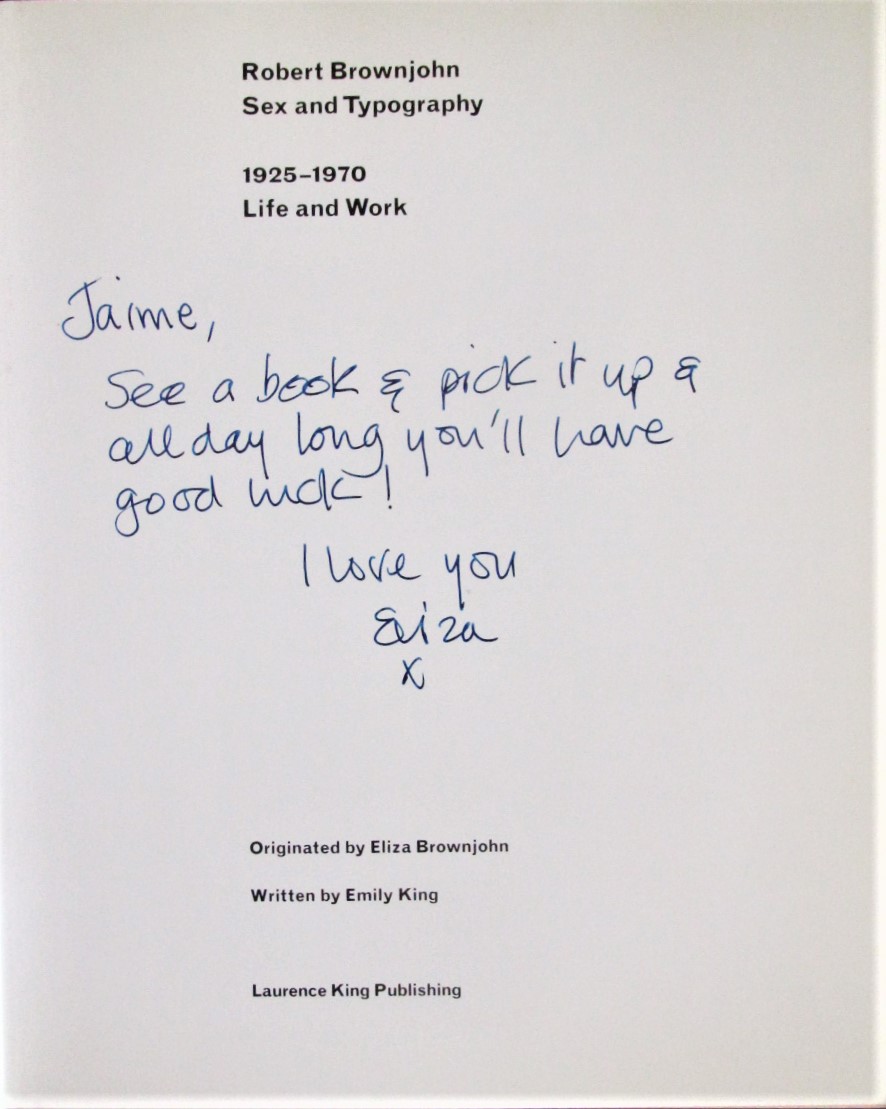 Robert Brownjohn
Sex and Typography
1925–1970
Life and Work
Jaime,
See a book & pick it up &
all day long you'll have
good luck!
I love you
Eliza
x
Originated by Eliza Brownjohn
Written by Emily King
Laurence King Publishing